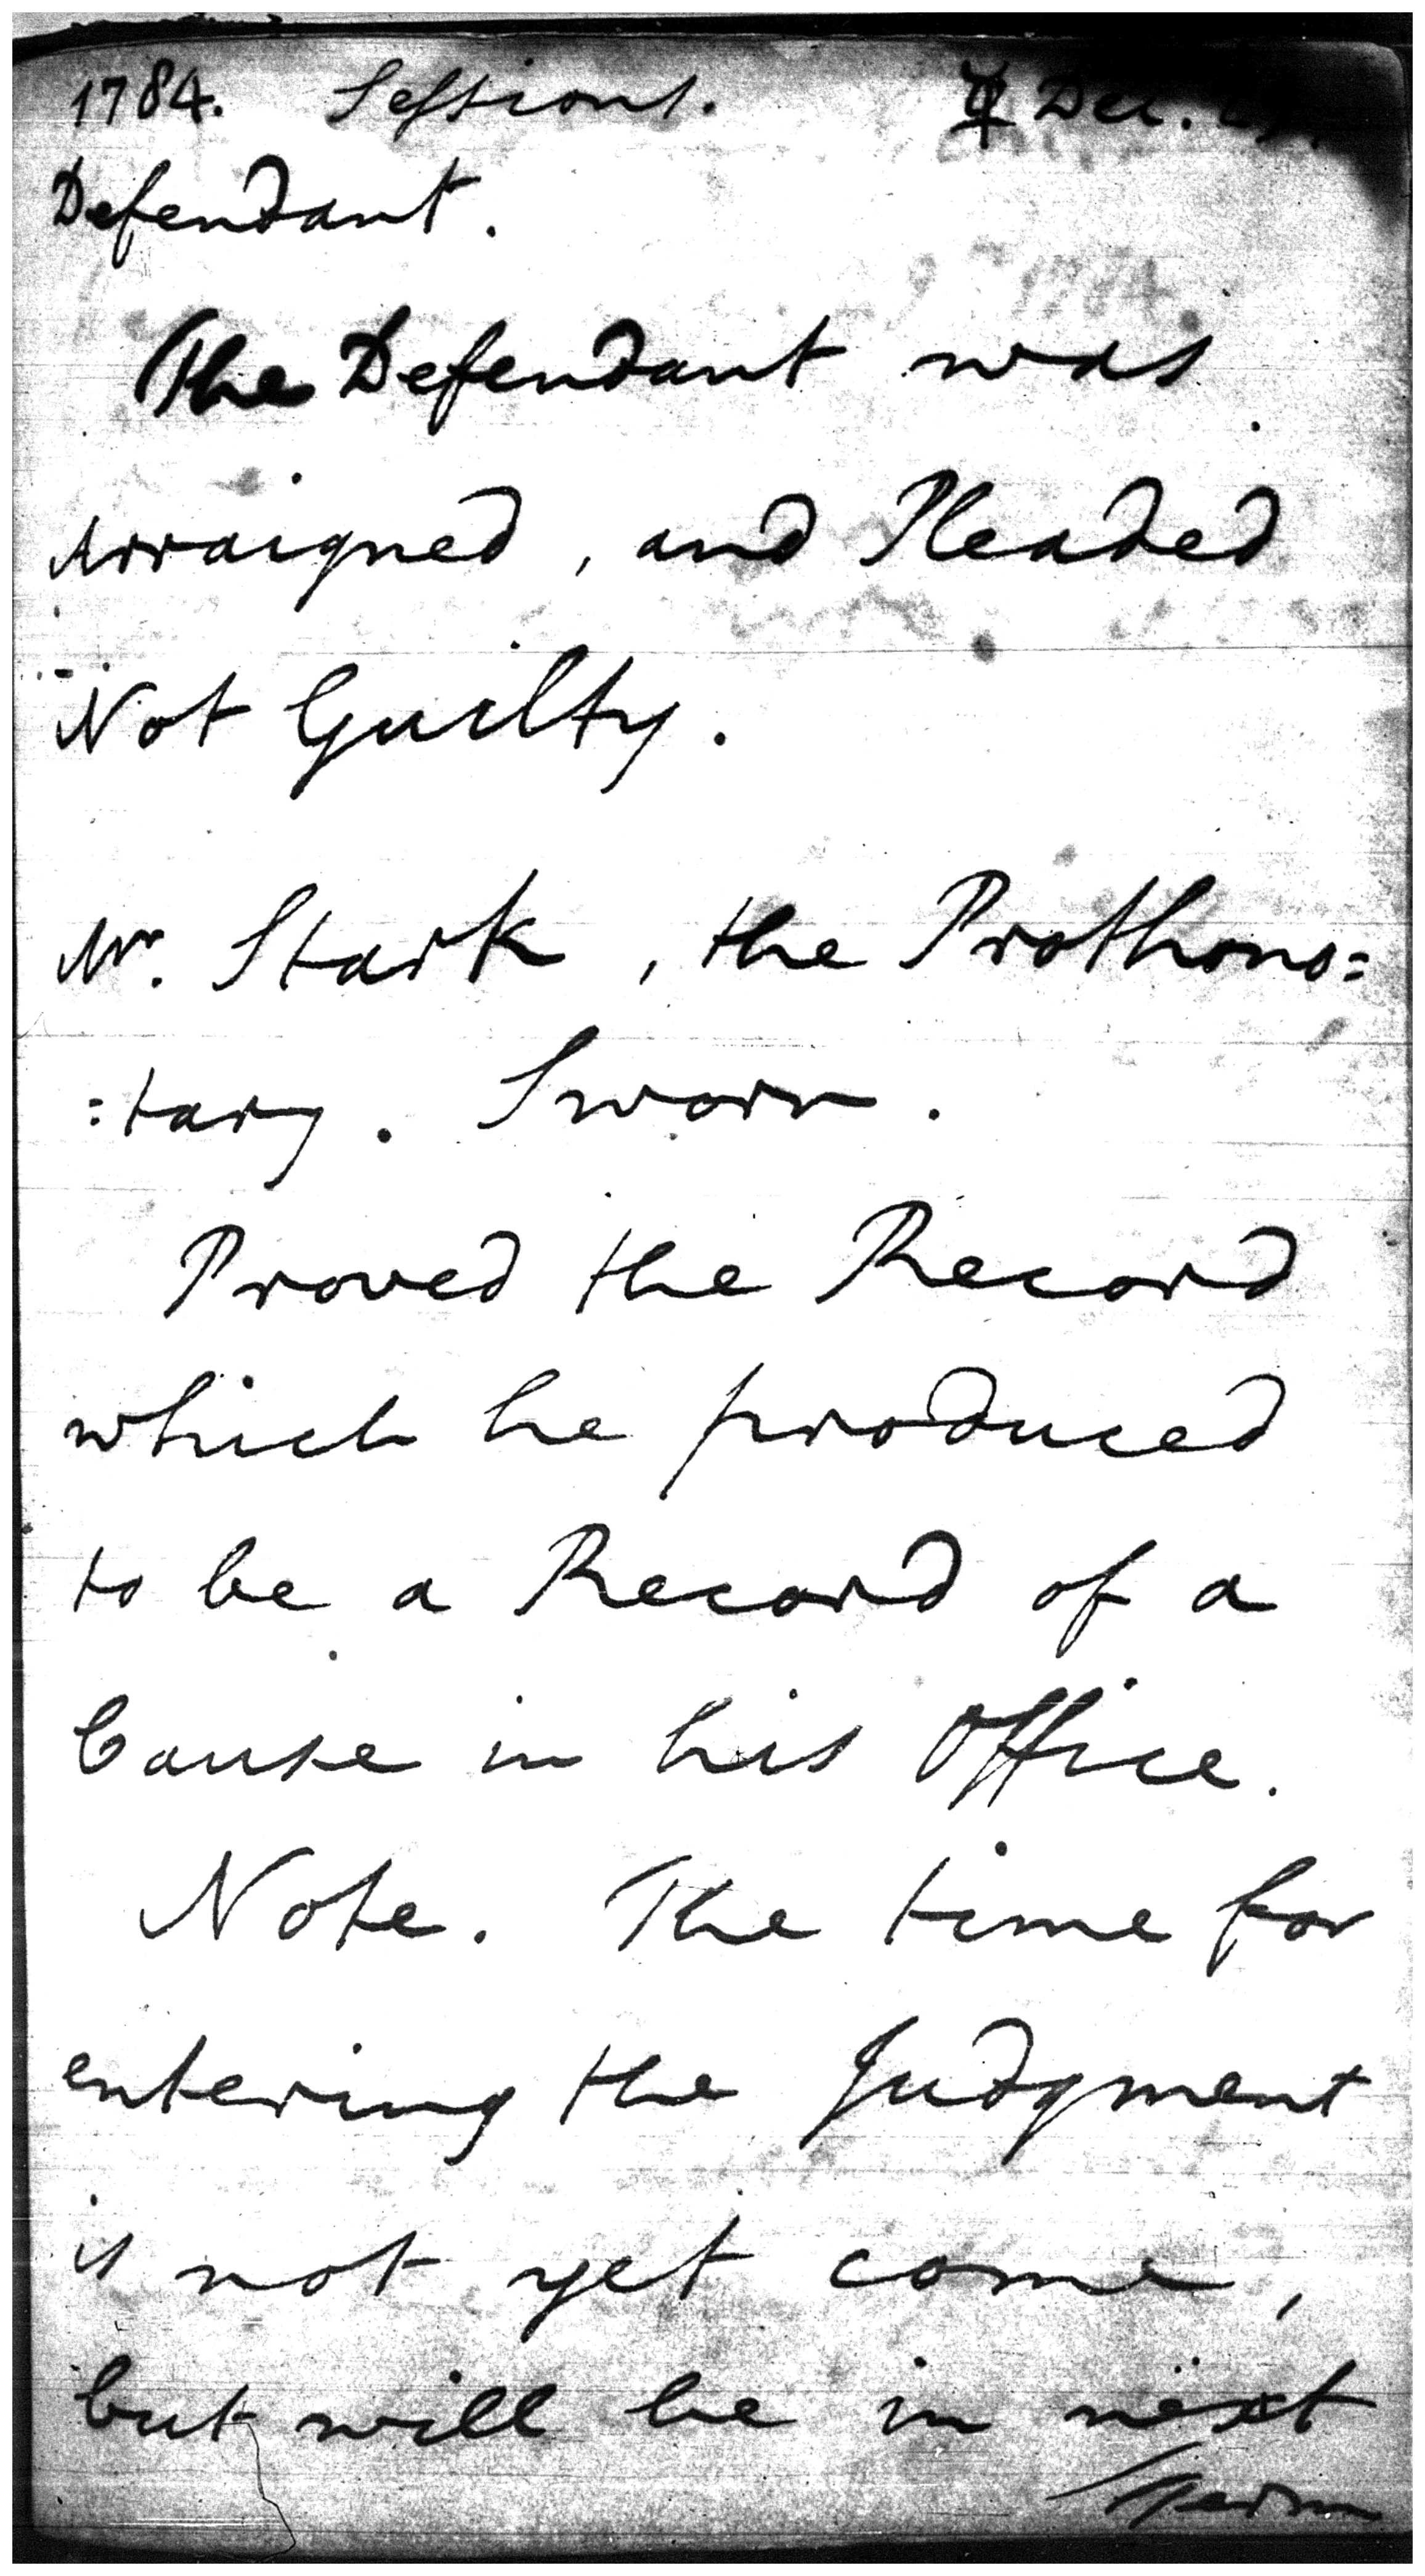 1784. Sessions. Dec.
Defendant.
The Defendant was
Arraigned, and Pleaded
Not Guilty.
Mr. Stark, the Prothono=
=tary. Sworn.
Proved the Record
which he produced
to be a Record of a
Cause in his Office.
Note. The time for
entering the Judgment
is not yet come,
but will be in next
Term